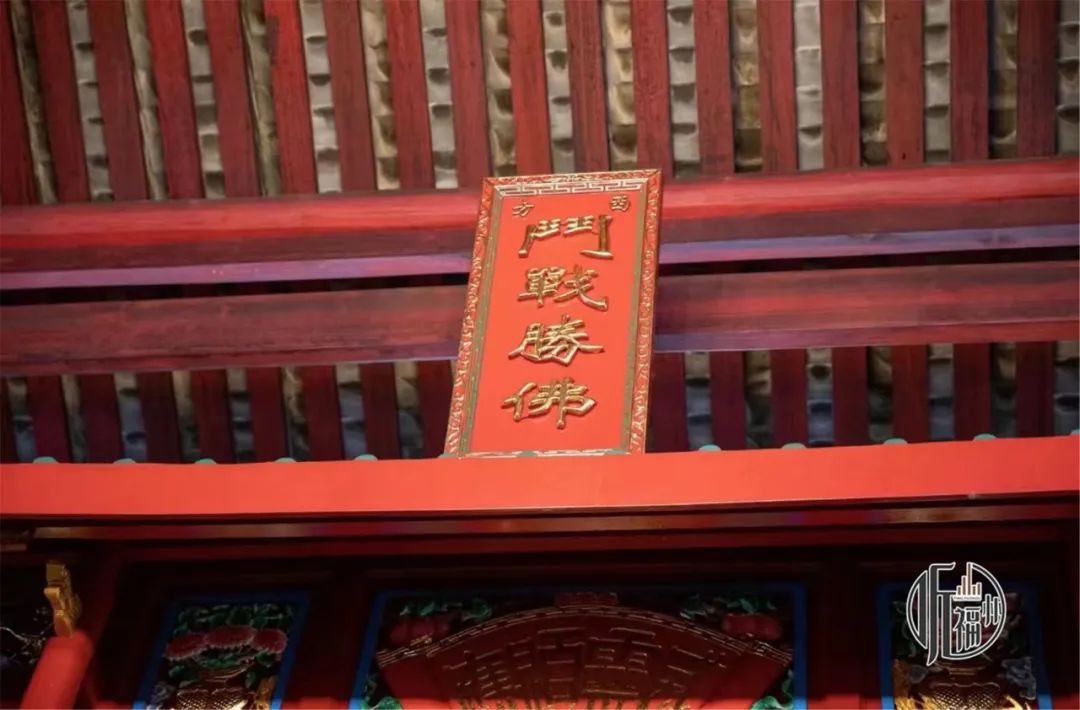 西方
鬥戰勝佛
听福州